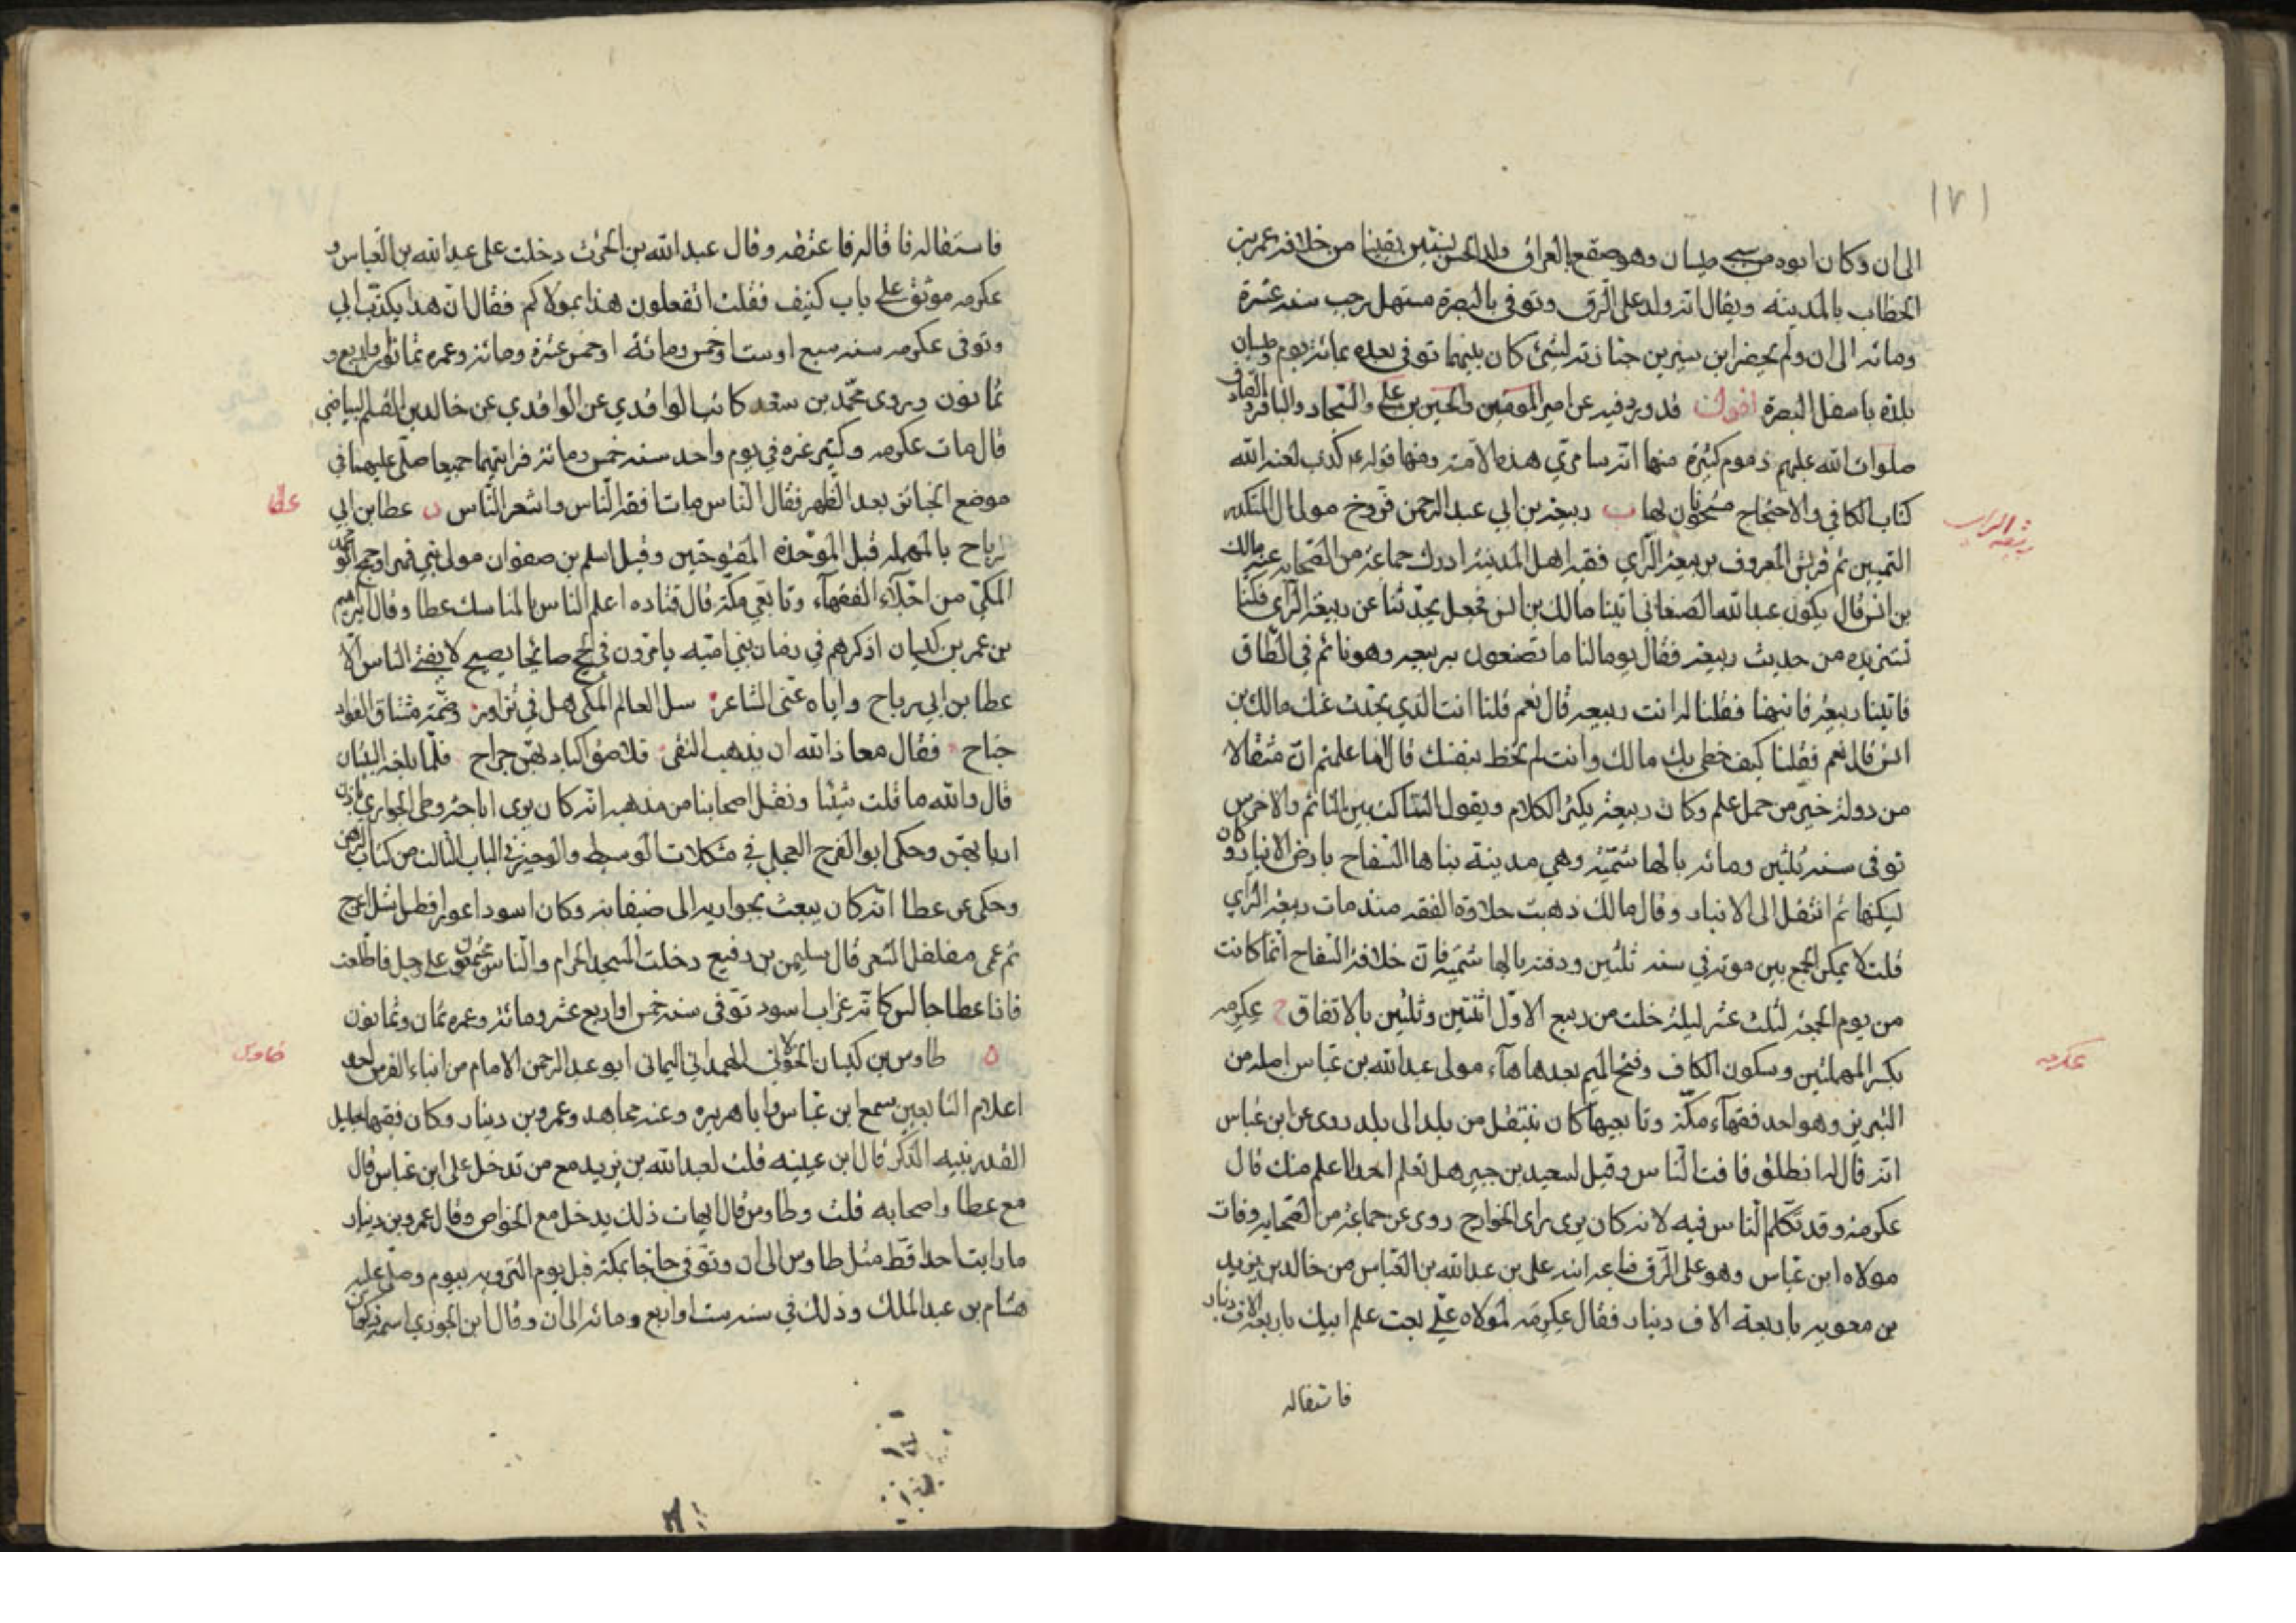 ١٧١
الى ان وكان ابوه من سبي ميسان وهو صقع بالعراق ولد الحسن لسنتين بقيتا من خلافة عمر بن
الخطاب بالمدينه ويقال انه ولد على الرق وتوفى بالبصرة مستهل رجب سنه عشرة
ومائه الى ان ولم يحضر ابن سيرين جنازته لشئ كان بينهما توفى بعده بمائة يوم وميسان
بلدة باسفل البصرة اقول قد ورد فيه عن امير المؤمنين والحسين بن علي والسجاد والباقر والصادق
صلوات الله عليهم ذموم كثيرة منها انه سامري هذه الامة ومنها قوله عم كذب لعنه الله
كتاب الكافي والاحتجاج مشحونان بها ب ربيعة بن ابي عبد الرحمن فروخ مولى ال المنكدر
ربيعه الراي
التميين ثم قريش المعروف بربيعة الرأي فقيه اهل المدينة ادرك جماعة من الصحابه وعنه مالك
بن انس قال بكون عبد الله الصنعاني اتينا مالك بن انس فجعل يحدثنا عن ربيعة الرأي فكنا
نستزيده من حديث ربيعه فقال يوما لنا ما تصنعون بربيعه وهو نائم في الطاق
فاتينا ربيعة فانبهنا فقلنا له انت ربيعه قال نعم قلنا انت الذي يحدث عنك مالك بن
انس قال نعم فقلنا كيف حظى بك مالك وانت لم تحظ بنفسك قال اما علمتم ان مثقالا
من دولة خير من حمل علم وكان ربيعة يكثر الكلام ويقول الساكت بين النائم والاخرس
توفى سنه ثلثين ومائه بالهاشميه وهي مدينة بناها السفاح بارض الانبار وكان
ليكنها ثم انتقل الى الانبار وقال مالك ذهبت حلاوة الفقه منذ مات ربيعة الرأي
قلت لا يمكن الجمع بين موته في سنه ثلثين ودفنه بالهاشميه فان خلافة السفاح انما كانت
من يوم الجمعه لثلث عشر ليلة خلت من ربيع الاول اثنتين وثلثين بالاتفاق ج عكرمه
عكرمه
بكسر المهملتين وسكون الكاف وفتح الميم بعدها هاء مولى عبد الله بن عباس اصله من
البربر وهو احد فقهاء مكة وتابعيها كان ينتقل من بلد الى بلد روى عن ابن عباس
انه قال له انطلق فافت الناس وقيل لسعيد بن جبير هل تعلم احدا اعلم منك قال
عكرمه وقد تكلم الناس فيه لانه كان يرى راى الخوارج روى عن جماعة من الصحابه وفات
مولاه ابن عباس وهو على الرق فباعه ابنه علي بن عبد الله بن العباس من خالد بن يزيد
بن معويه باربعة الاف دينار فقال عكرمه لمولاه علي بعت علم ابيك باربعة الاف دينار
فاستقاله
فاستقاله فاقاله فاعتقه وقال عبد الله بن الحرث دخلت على عبد الله بن العباس و
عكرمه موثق على باب كنيف فقلت اتفعلون هذا بمولاكم فقال ان هذا يكذب ابي
وتوفى عكرمه سنه سبع او ست او خمس ومائة او خمس عشرة ومائة وعمره ثمانون او اربع و
ثمانون وروى محمد بن سعد كاتب الواقدي عن الواقدي عن خالد بن القسم البياضي
قال مات عكرمه وكثير عزه في يوم واحد سنه خمس ومائة فرايتهما جميعا صلى عليهما في
موضع الجنائز بعد الظهر فقال الناس مات افقه الناس واشعر الناس د عطا بن ابي
عطا
رباح بالمهمله قبل الموحدة المفتوحتين وقيل اسلم بن صفوان مولى بني فهر او جمح ابو محمد
المكي من اجلاء الفقهاء وتابعي مكة قال قتاده اعلم الناس بالمناسك عطا وقال ابرهيم
بن عمر بن كيسان اذكرهم في زمان بني اميه يامرون في الحج صائحا يصيح لا يفتي الناس الا
عطا بن ابي رباح واياه عنى الشاعر سل العالم المكي هل في تزاور وضمة مشتاق الفواد
جناح فقال معاذ الله ان يذهب التقى تلاصق اكباد بهن جراح فلما بلغه البيتان
قال والله ما قلت شيئا ونقل اصحابنا من مذهبه انه كان يرى اباحة وطي الجواري باذن
اربابهن وحكى ابو الفرج العجلي في مشكلات الوسيط والوجيز في الباب الثالث من كتاب الرهن
وحكى عن عطا انه كان يبعث بجواريه الى ضيفانه وكان اسود اعور افطس اشل اعرج
ثم عمى مفلفل الشعر قال سليمن بن رفيع دخلت المسجد الحرام والناس مجتمعون على رجل فاطلعت
فاذا عطا جالس كانه غراب اسود توفى سنه خمس او اربع عشر ومائة وعمره ثمان وثمانون
ه طاوس بن كيسان الخولاني الهمداني اليماني ابو عبد الرحمن الامام من ابناء الفرس احد
طاوس
اعلام التابعين سمع ابن عباس وابا هريره وعنه مجاهد وعمرو بن دينار وكان فقيها جليل
القدر نبيه الذكر قال ابن عيينه قلت لعبد الله بن يزيد مع من تدخل على ابن عباس قال
مع عطا واصحابه قلت وطاوس قال ايهات ذلك يدخل مع الخواص وقال عمرو بن دينار
ما رايت احدا قط مثل طاوس الى ان وتوفى حاجا بمكة قبل يوم الترويه بيوم وصلى عليه
هشام بن عبد الملك وذلك في سنه ست او اربع ومائه الى ان وقال ابن الجوزي اسمه ذكوان